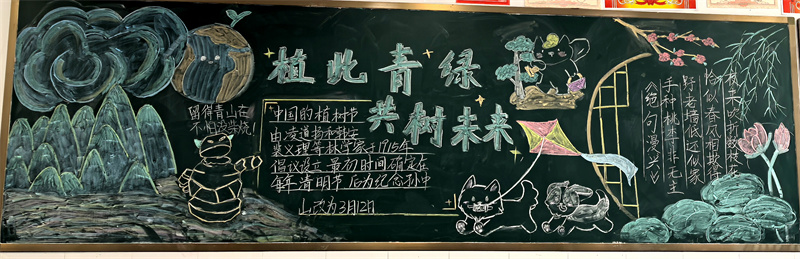 植此青绿
共树未来
留得青山在
不怕没柴烧!
中国的植树节
由凌道扬和韩安
裴义理等林学家于1915年
倡议设立 最初时间确定在
每年清明节 后为纪念孙中
山改为3月12日
绝句漫兴
手种桃李非无主
野老墙低还似家
恰似春风相欺得
夜来吹折数枝花